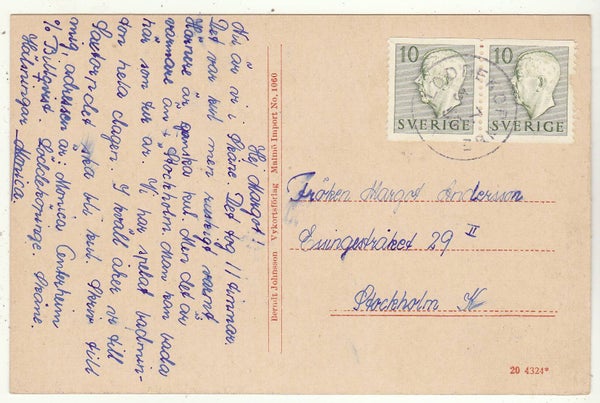 Hej Margot!
Nu är vi i Skåne. Det tog 11 timmar.
Det var kul men ruskigt varmt
Härnere är ganska kul. Men det är
varmare än i Stockholm. Man kan bada
här som tur är. Vi har spelat badmin-
ton hela dagen. I kväll åker vi till
ska bli kul. Skriv till
mig, adressen är: Monica Centerheim
% Billquist. Löddeköpinge. Skåne.
Hälsningar Monica
Berndt Johnsson Vykortsförlag Malmö Import No. 1060
10 10
SVERIGE SVERIGE
Fröken Margot Andersson
29 II
Stockholm K
20 4324*